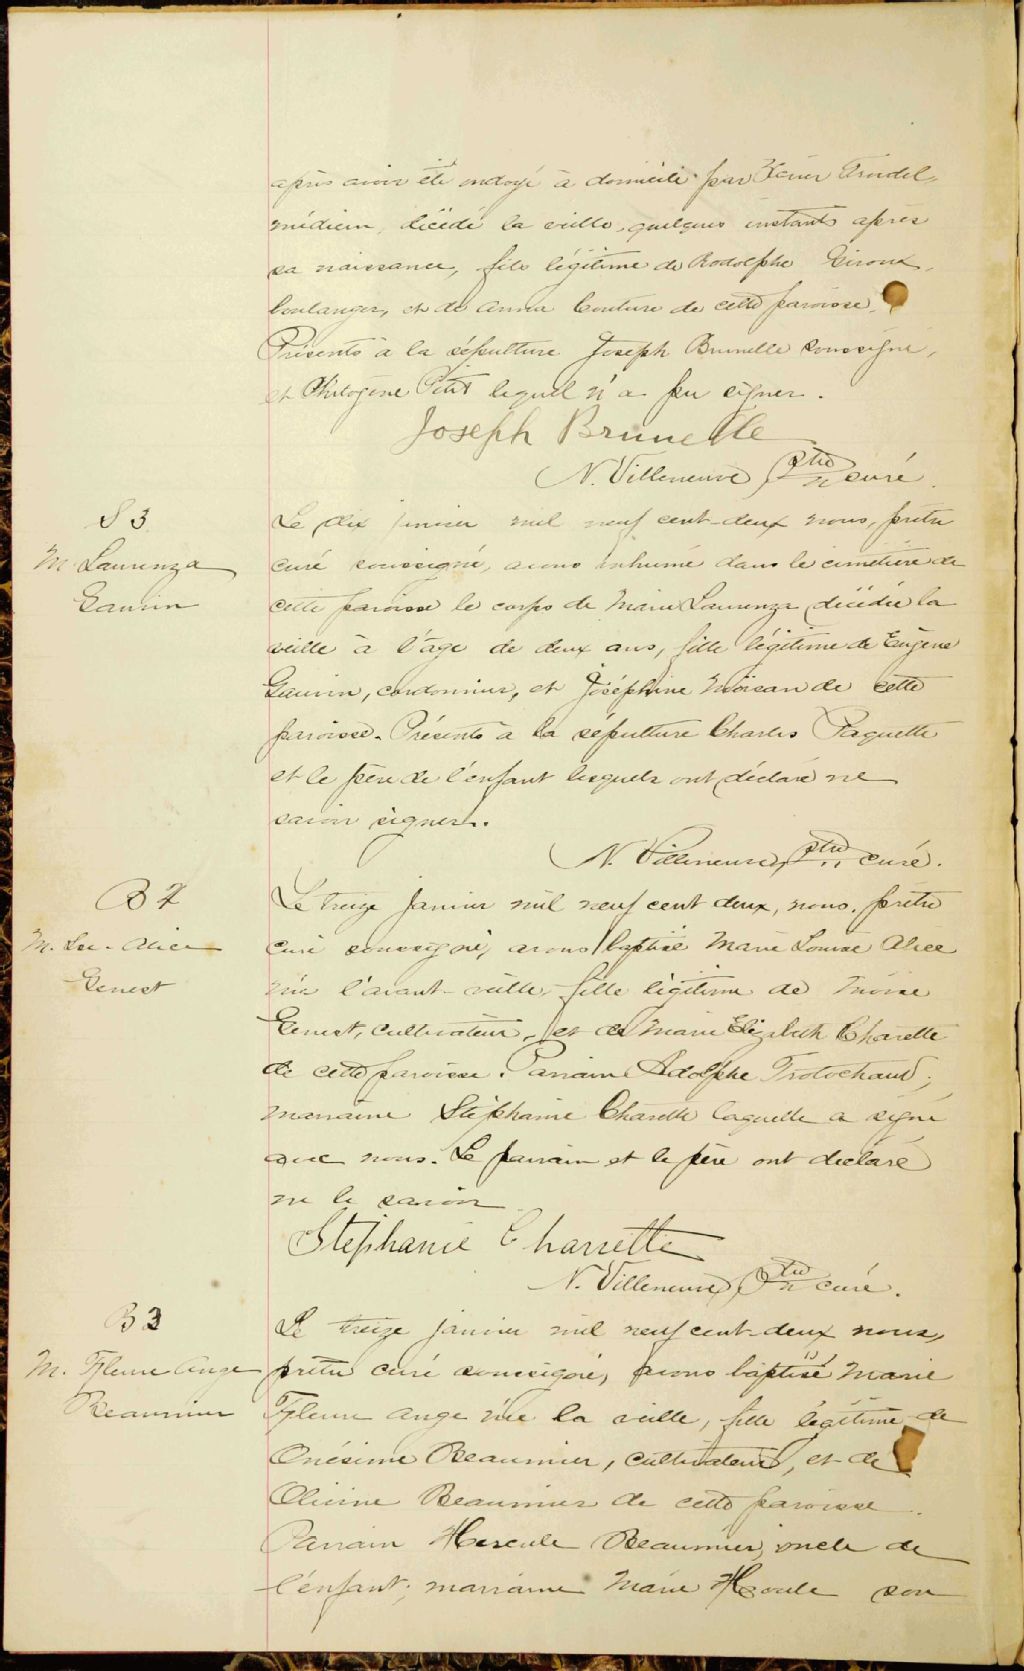 après avoir été ondoyé à domicile par Xavier Trudel,
médecin, décédé la veille, quelques instants après
sa naissance, fils légitime de Rodolphe Giroux,
boulanger, et de Anna Couture de cette paroisse.
Présents à la sépulture Joseph Brunelle soussigné,
et Philogène Petit lequel n'a pu signer.
Joseph Brunelle
N. Villeneuve Ptre curé.
S 3
M. Laurenza
Gauvin
Le dix janvier mil neuf cent-deux nous, prêtre
curé soussigné, avons inhumé dans le cimetière de
cette paroisse le corps de Marie Laurenza décédée la
veille à l'âge de deux ans, fille légitime de Eugène
Gauvin, cordonnier, et Joséphine Moisan de cette
paroisse. Présents à la sépulture Charles Paquette
et le père de l'enfant lesquels ont déclaré ne
savoir signer.
N. Villeneuve, Ptre curé.
B 2
M. Lse-Alice
Genest
Le treize janvier mil neuf cent deux, nous, prêtre
curé soussigné, avons baptisé Marie Louise Alice
née l'avant-veille, fille légitime de Moïse
Genest, cultivateur, et de Marie Elizabeth Charette
de cette paroisse. Parrain Adolphe Trotochaud;
marraine Stéphanie Charette laquelle a signé
avec nous. Le parrain et le père ont déclaré
ne le savoir
Stephanie Charrette
N. Villeneuve Ptre curé.
B 3
M. Fleur Ange
Beaumier
Le treize janvier mil neuf cent-deux nous,
prêtre curé soussigné, avons baptisé Marie
Fleur Ange née la veille, fille légitime de
Onésime Beaumier, cultivateur, et de
Olivine Beaumier de cette paroisse.
Parrain Hercule Beaumier, oncle de
l'enfant; marraine Marie Houle son